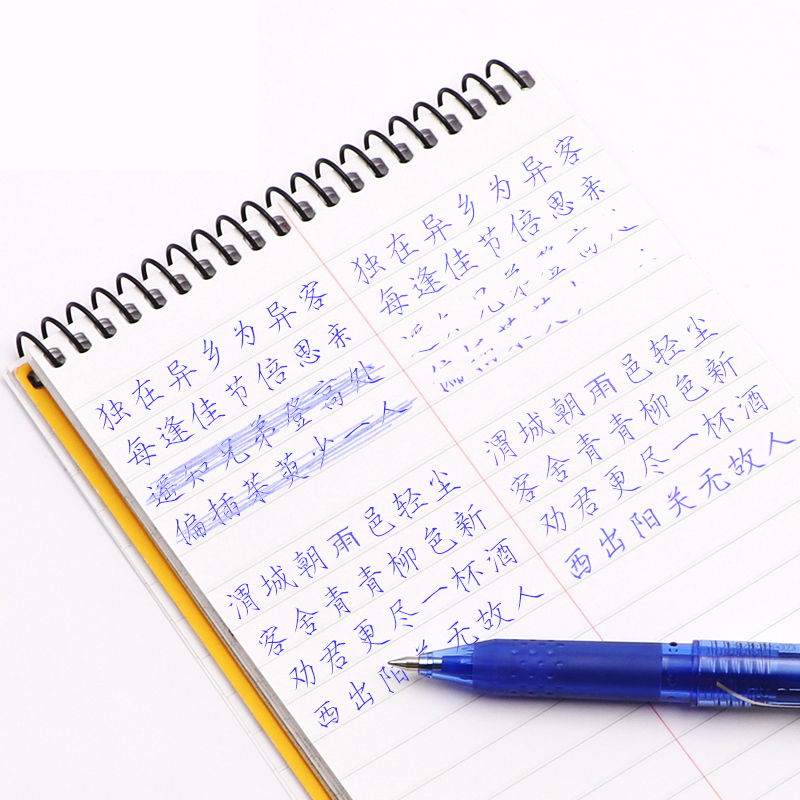 独在异乡为异客
每逢佳节倍思亲
遥知兄弟登高处
偏插茱萸少一人
渭城朝雨邑轻尘
客舍青青柳色新
劝君更尽一杯酒
西出阳关无故人
独在异乡为异客
每逢佳节倍思亲
渭城朝雨邑轻尘
客舍青青柳色新
劝君更尽一杯酒
西出阳关无故人